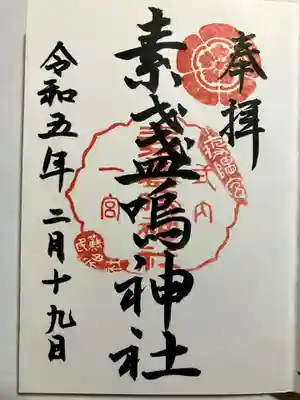 奉拝
素盞嗚神社
式内
一宮
令和五年二月十九日